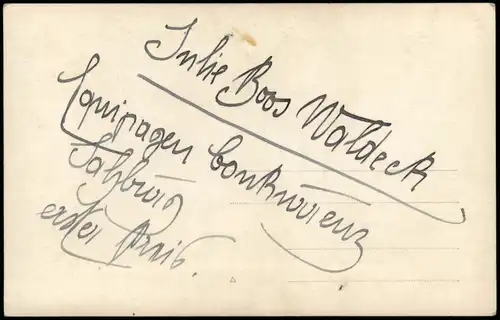 Julie Boos Waldeck
Equipagen Conkurrenz
Salzburg
erster Preis.